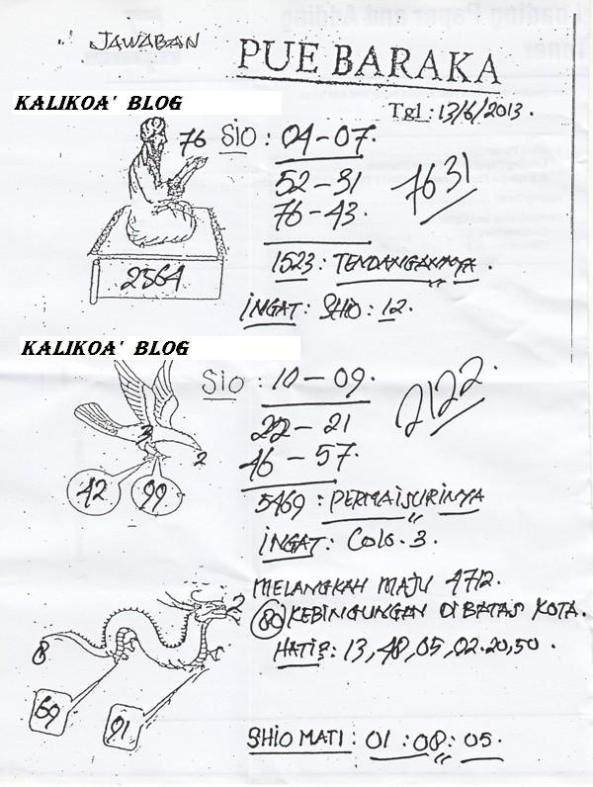 JAWABAN
PUE BARAKA
KALIKOA' BLOG
Tgl: 13/6/2013.
76 SIO : 04 - 07.
52 - 31
76 - 43.
7631
2564
1523 : TENDANGANNYA.
INGAT : SHIO : 12.
KALIKOA' BLOG
SIO : 10 - 09.
22 - 21
46 - 57.
2122.
3
2
42 99
5469 : PERMAISURINYA
INGAT : COLO. 3.
MELANGKAH MAJU 4712.
80 KEBINGUNGAN DI BATAS KOTA.
HATI2 : 13, 48, 05, 02. 20, 50.
2
8
69
91
SHIO MATI : 01 : 08 : 05.